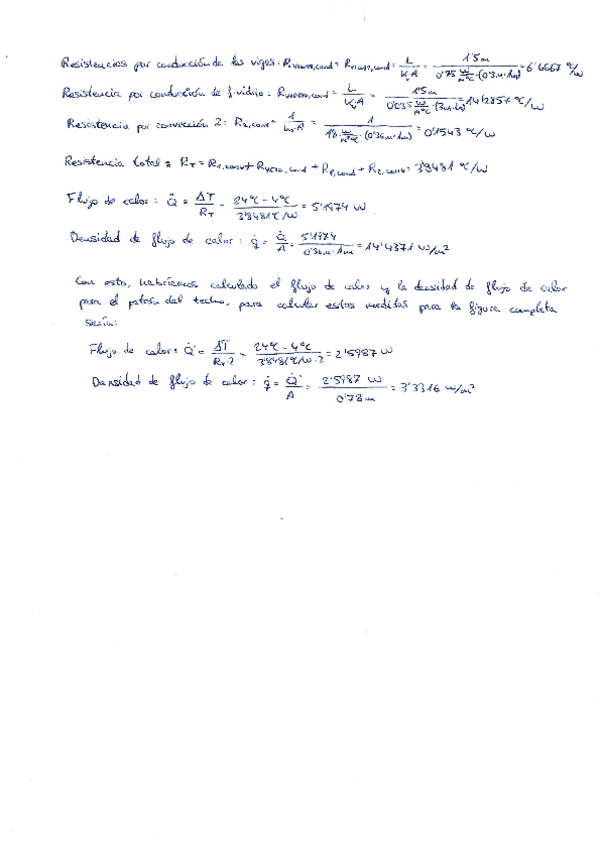 Resistencias por conducción de las vigas: R viga, cond = R viga2, cond = L/K·A = 1'5m / 0'75 W/m°C ·(0'3m·1m) = 6'6667 °C/W
Resistencia por conducción de f. vidrio: R vidrio, cond = L/K·A = 1'5m / 0'035 W/m°C ·(3m·1m) = 14'2857 °C/W
Resistencia por convección 2: R2,conv = 1/h2·A = 1 / 18 W/m²°C ·(0'36m·1m) = 0'1543 °C/W
Resistencia total: RT = R1,conv + Rvidrio,cond + RP,cond + R2,conv = 3'8481 °C/W
Flujo de calor: Q̇ = ΔT/RT = 24°C - 4°C / 3'8481°C/W = 5'1974 W
Densidad de flujo de calor: q̇ = Q̇/A = 5'1974 / 0'36m·1m = 14'4371 W/m²
Con esto, habríamos calculado el flujo de calor y la densidad de flujo de calor
para el patrón del techo, para calcular estas medidas para la figura completa
sería:
Flujo de calor: Q̇' = ΔT/RT·2 = 24°C - 4°C / 3'8481°C/W·2 = 2'5987 W
Densidad de flujo de calor: q̇ = Q̇'/A = 2'5987 W / 0'78m = 3'3316 W/m²